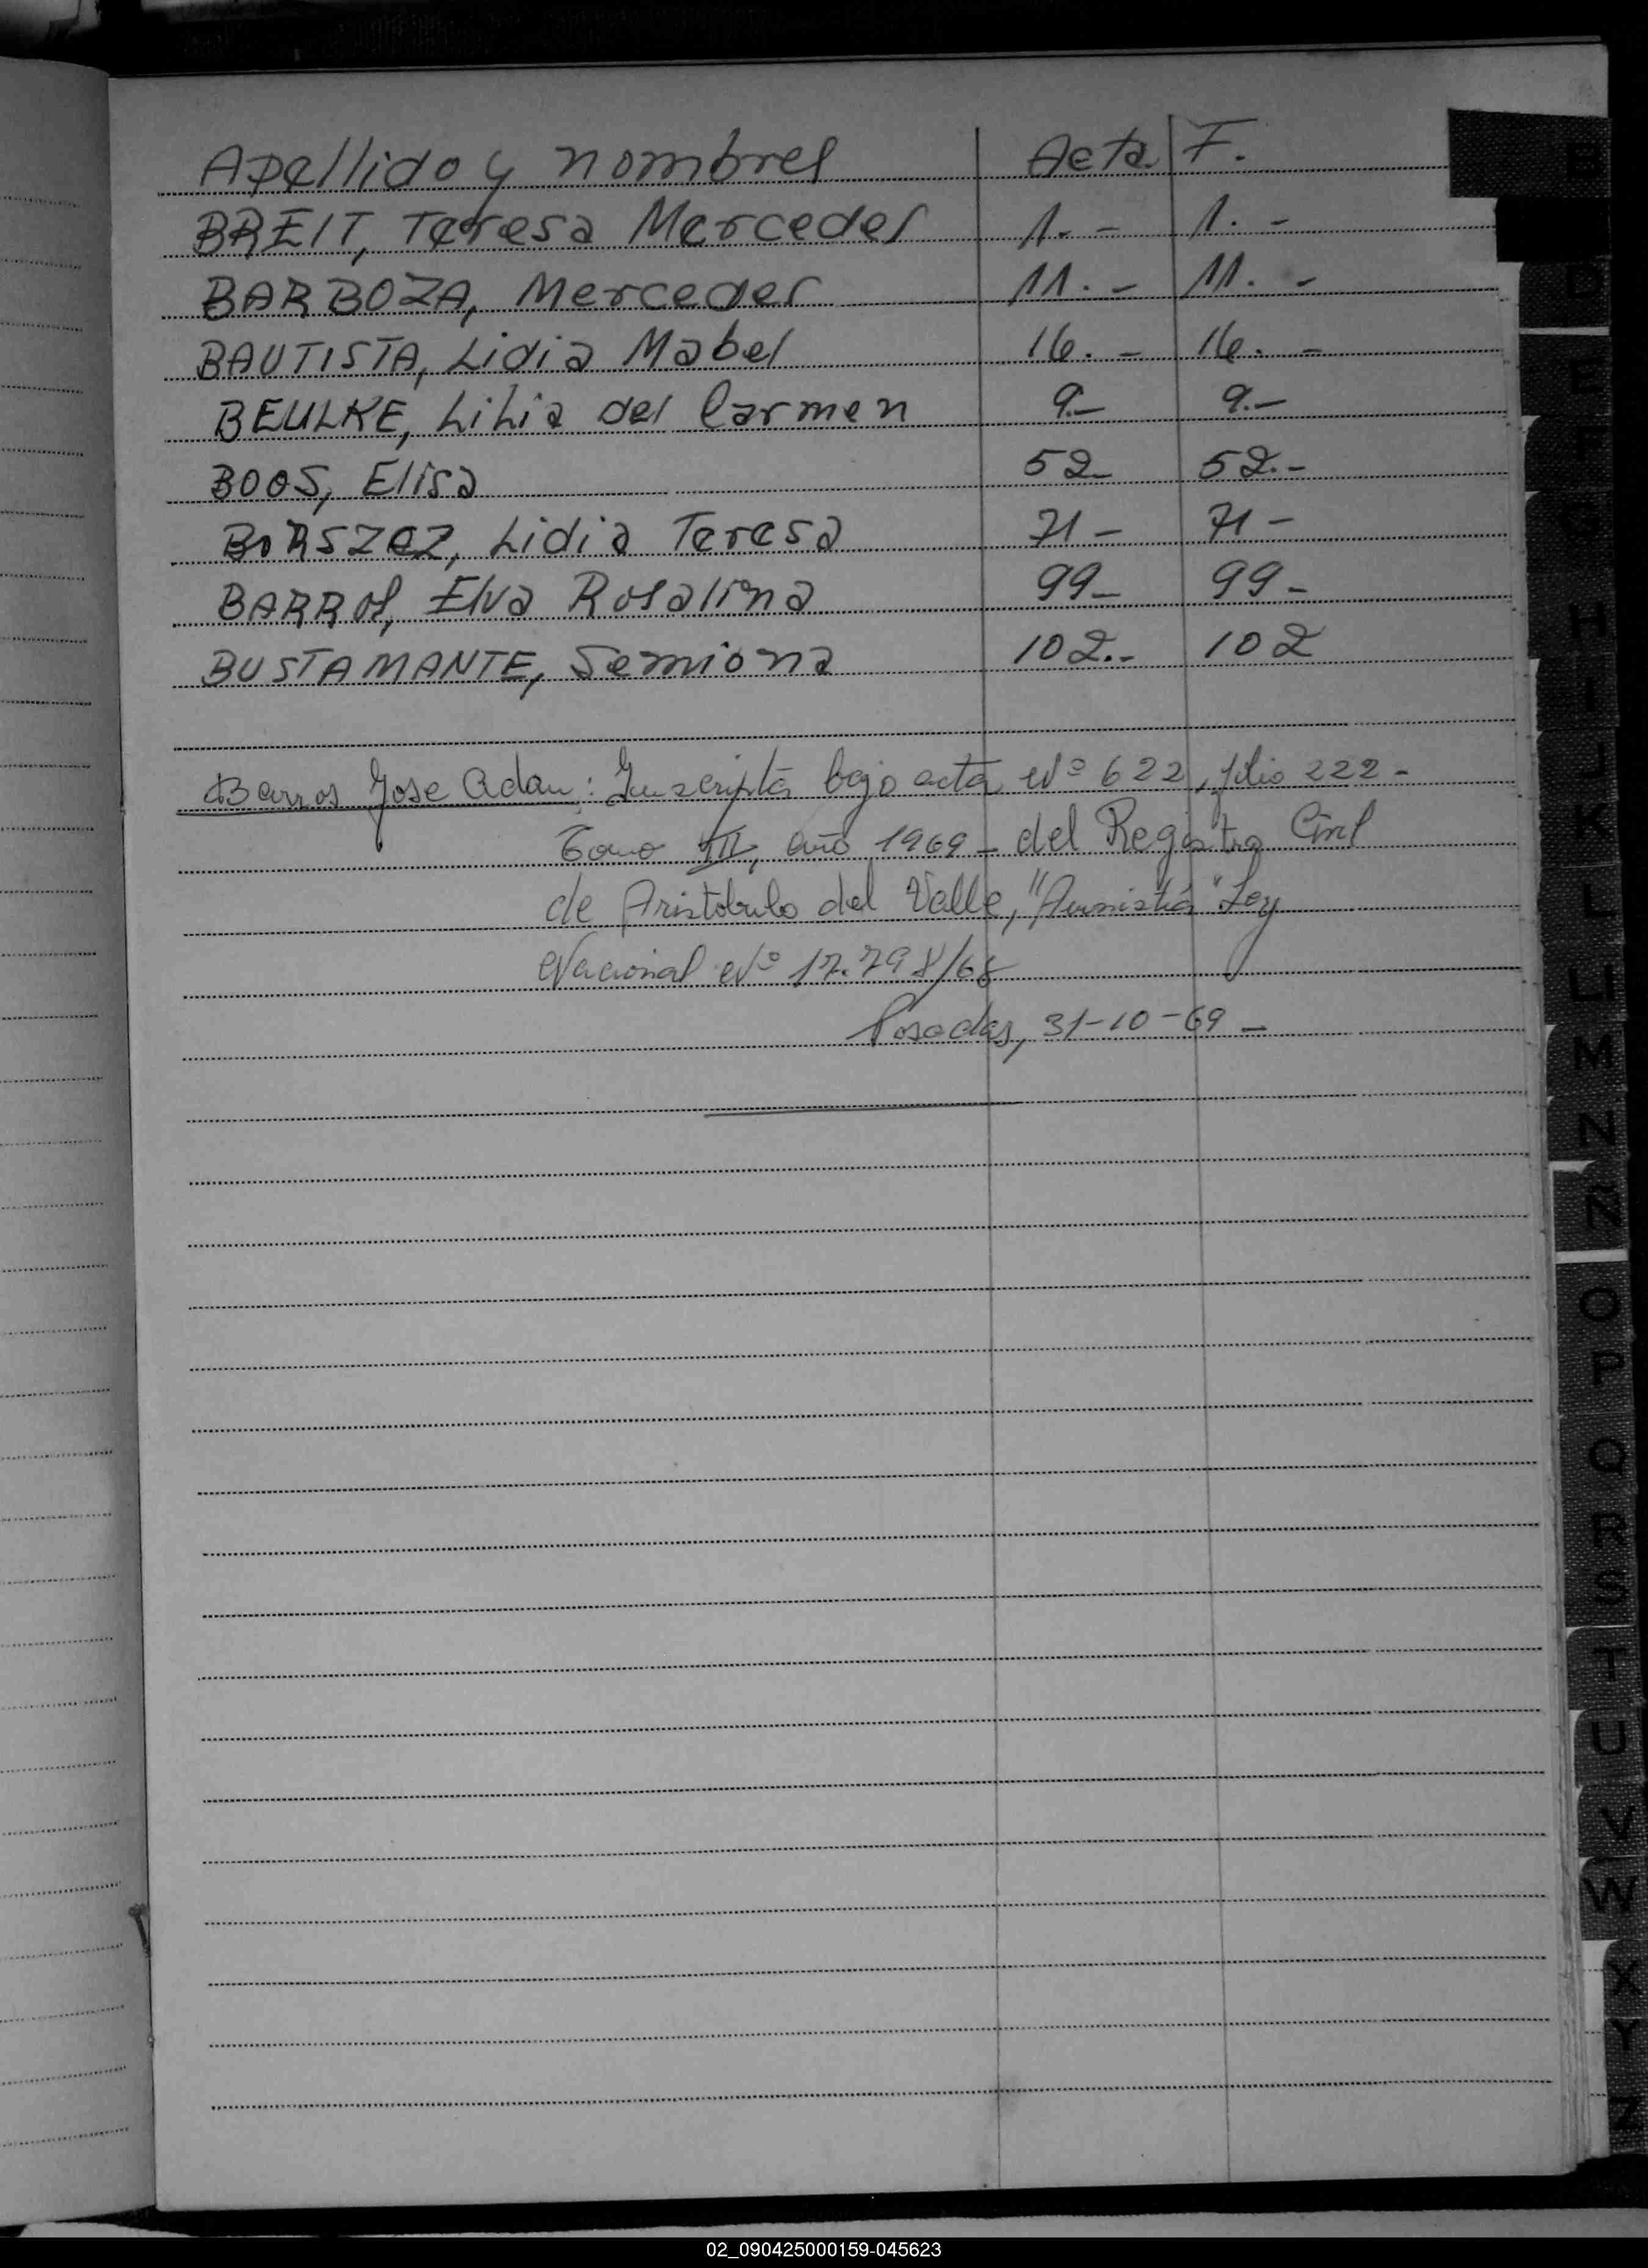 Apellido y nombres Acta F.
BREIT, Teresa Mercedes 1.- 1.-
BARBOZA, Mercedes 11.- 11.-
BAUTISTA, Lidia Mabel 16.- 16.-
BEULKE, LiLia del Carmen 9.- 9.-
BOOS, Elisa 52- 52.-
Lidia Teresa 71- 71-
BARROS, Elva Rosalina 99- 99-
BUSTAMANTE, 102.- 102
Barros Jose Adan: Inscripta bajo acta Nº 622, folio 222-
Tomo III, año 1969- del Registro Civil
de Aristobulo del Valle, "Amnistia" Ley
Nacional Nº 17.798/68
Posadas, 31-10-69-
B
D
E
F
G
H
I
J
K
L
LL
M
N
Ñ
O
P
Q
R
S
T
U
V
W
X
Y
Z
02_090425000159-045623